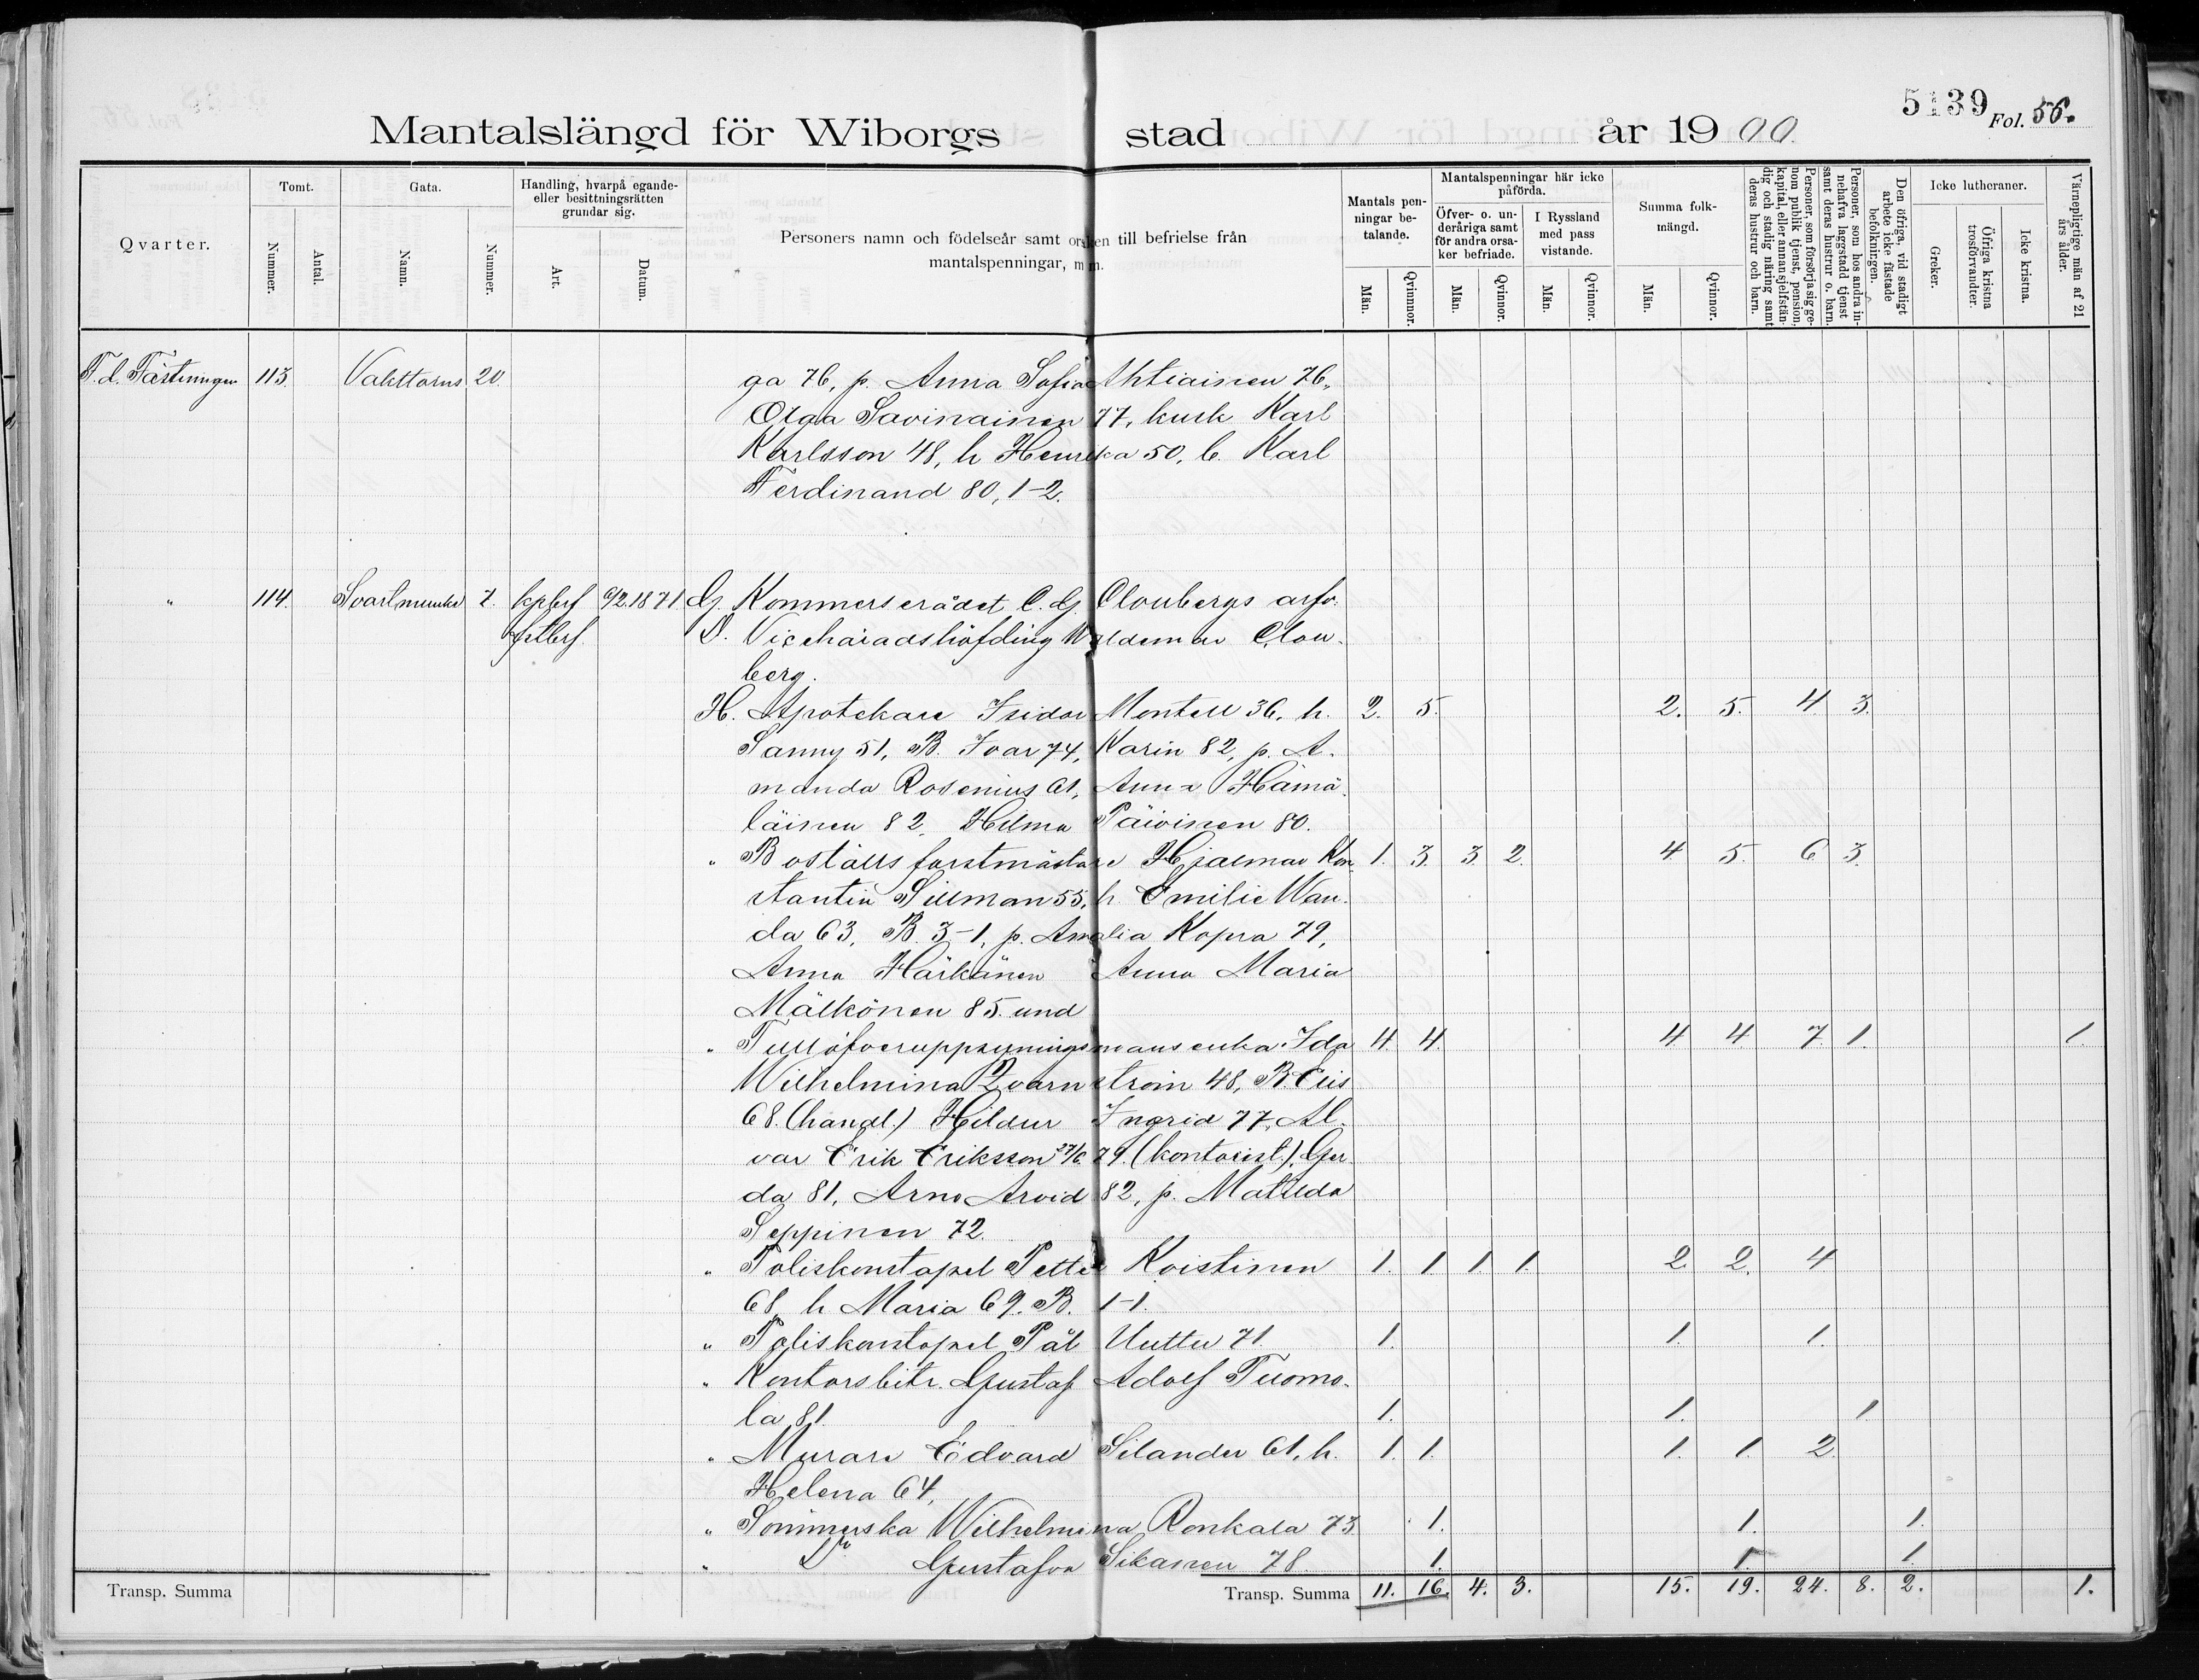 5139 Fol. 56.
Mantalslängd för Wiborgs stad år 1900.
Qvarter.
Tomt.
Nummer.
Antal.
Gata.
Namn.
Nummer.
Handling, hvarpå egande- eller besittningsrätten grundar sig.
Art.
Datum.
Personers namn och födelseår samt orsaken till befrielse från
mantalspenningar, m m.
Mantals penningar betalande.
Män.
Qvinnor.
Mantalspenningar här icke påförda.
Öfver- o. underåriga samt för andra orsaker befriade.
Män.
Qvinnor.
I Ryssland med pass vistande.
Män.
Qvinnor.
Summa folkmängd.
Män.
Qvinnor.
Personer, som försörja sig genom publik tjenst, pension, kapital, eller annan sjelfständig och stadig näring samt deras hustrur och barn.
Personer, som hos andra innehafva laggstadd tjenst samt deras hustrur o. barn.
Den öfriga, vid stadigt arbete icke fästade befolkningen.
Icke lutheraner.
Greker.
Öfriga kristna trosförvandter.
Icke kristna.
Värnepligtige män af 21 års ålder.
F. d. Fästningen 113. Vakttorns 20. ga 76, p. Anna Sofia Ahtiainen 76,
Olga Savinainen 77, kusk Karl
Karlsson 48, h Henrika 50, b. Karl
Ferdinand 80, 1-2.
" 114. Svartmunke 7. kpbrf 9/2.1871 G. Kommerserådet C. G. Cloubergs arfv.
fstbrf. D. Vicehäradshöfding Waldemar Clou-
berg.
H. Apotekare Isidor Montell 36, h. 2. 5. 2. 5. 4 3.
Fanny 51, B. Ivar 74, Karin 82, p. A-
manda Rosenius 61, Anna Hämä-
läinen 82, Hilma Päivinen 80.
" Boställsforstmästare Hjalmar Kon- 1. 3. 3 2. 4 5. 6 3.
stantin Sillman 55, h. Emilie Wan-
da 63, B. 3-1, p. Amalia Kopra 79,
Anna Härkänen Anna Maria
Mälkönen 85. und
" Tullöfveruppsyningsmansenka Ida 4. 4. 4 4 7 1. 1.
Wilhelmina Qvarnström 48, B. Elis
68. (handl.) Hildur Ingrid 77, Al-
var Erik Eriksson 27/6. 79. (kontorist.), Ger-
da 81, Arno Arvid 82, p. Matilda
Seppinen 72.
" Poliskonstapel Petter Koistinen 1. 1. 1. 1. 2 2. 4
68, h Maria 69. B. 1-1.
" Poliskonstapel Pål Uuttu 71. 1. 1. 1.
" Kontorsbitr. Gustaf Adolf Tuomo-
la 81. 1. 1. 1.
" Murare Edvard Silander 61, h. 1. 1. 1. 1. 2.
Helena 64,
" Sömmerska Wilhelmina Ronkala 73 1. 1. 1.
" Do Gustafva Sikanen 78. 1. 1. 1.
Transp. Summa Transp. Summa 11. 16. 4. 3. 15. 19. 24. 8. 2. 1.